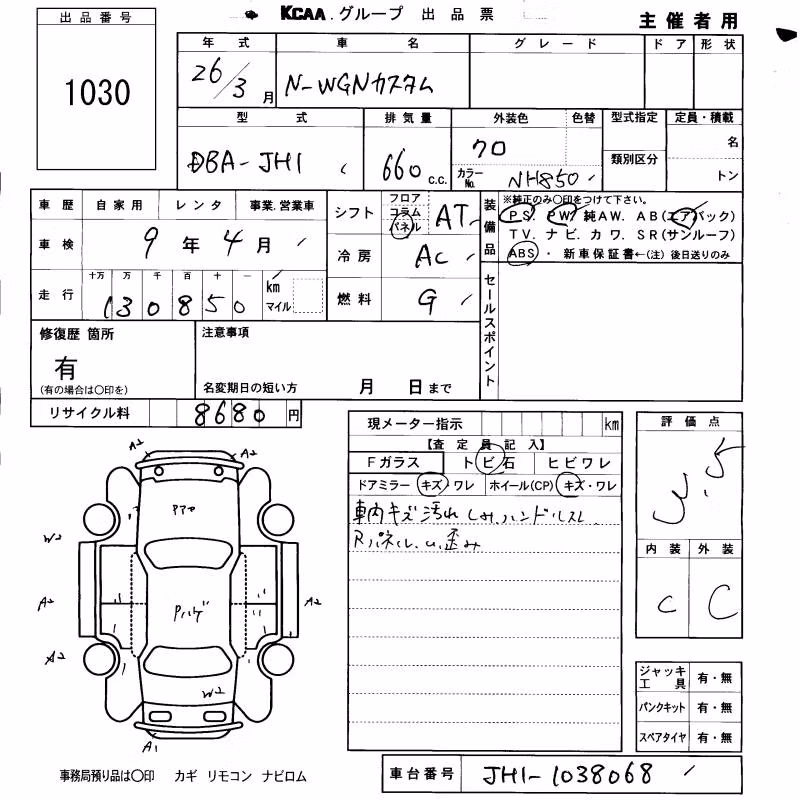 KCAA.グループ 出品票
主催者用
出品番号
1030
年式 車名 グレード ドア 形状
26/3月 N-WGNカスタム
型式 排気量 外装色 色替 型式指定 定員・積載
DBA-JH1 660 c.c. クロ 名
カラーNo. NH850 類別区分 トン
車歴 自家用 レンタ 事業.営業車
車検 9年4月
走行 十万 万 千 百 十 一
130850 km マイル
シフト フロア コラム パネル AT
冷房 AC
燃料 G
装備品 ※純正のみ〇印をつけて下さい。
PS. PW. 純AW. AB(エアバック)
TV. ナビ. カワ. SR(サンルーフ)
ABS ・ 新車保証書←(注) 後日送りのみ
セールスポイント
修復歴 箇所
有
(有の場合は〇印を)
注意事項
名変期日の短い方 月 日まで
リサイクル料 8680円
現メーター指示 km
【査定員記入】
Fガラス トビ石 ヒビワレ
ドアミラー キズ・ワレ ホイール(CP) キズ・ワレ
車内キズ汚れ シミ.ハンドルスレ.
Rパネル.u.歪み
評価点
3.5
内装 外装
C C
ジャッキ工具 有・無
パンクキット 有・無
スペアタイヤ 有・無
A2
A2
W2
A2
A2
A2
Pハゲ
W2
A1
事務局預り品は〇印 カギ リモコン ナビロム
車台番号 JH1-1038068